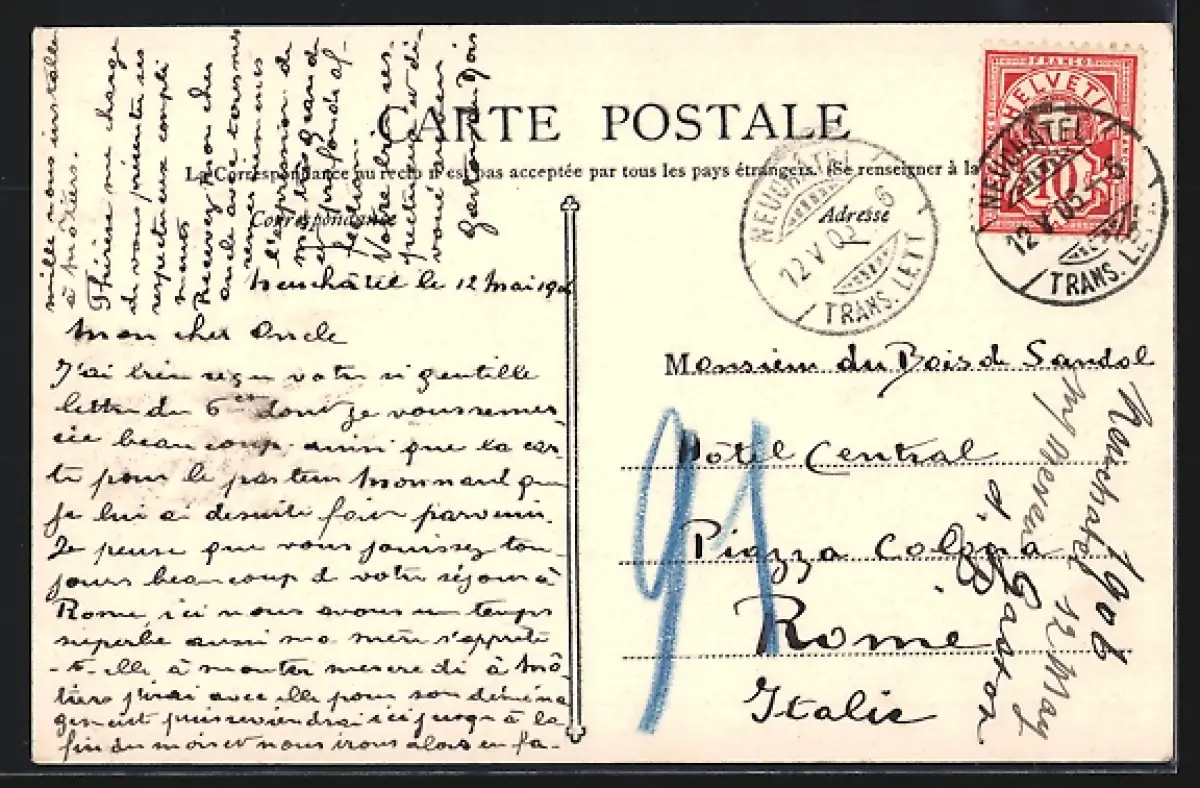 CARTE POSTALE
La Correspondance au recto n'est pas acceptée par tous les pays étrangers. (Se renseigner à la
Correspondance
Adresse
FRANCO
HELVETIA
10
NEUCHÂTEL
12 V 06 - 6
TRANS. LETT
NEUCHÂTEL
12 V 06 6
TRANS. LETT
Neuchâtel le 12 Mai 190
Mon cher Oncle
J'ai bien reçu votre si gentille
lettre du 6 dont je vous remer
cie beaucoup ainsi que la car
te pour le pasteur Monnard que
je lui ai de suite fait parvenir.
Je pense que vous jouissez tou-
jours beaucoup de votre séjour à
Rome, ici nous avons un temps
superbe aussi ma mère s'apprête
-t-elle à monter mercredi à Mô
tiers j'irai avec elle pour son déména
gement puis reviendrai ici jusqu'à la
fin du mois et nous irons alors en fa-
mille nous installer
à Môtiers.
Thérèse me charge
de vous présenter ses
respectueux compli
ments
Recevez mon cher
oncle avec tous mes
remerciements
l'expression de
ma très grande
et profonde af-
fection.
Votre bien res-
pectueux et dé-
voué neveu
Gaston du Bois
Monsieur du Bois de Sandol
Hôtel Central
Piazza Colonna
Rome
Italie
91
Neuchatel 1906
12 May
my neveu
Gaston
d. B.